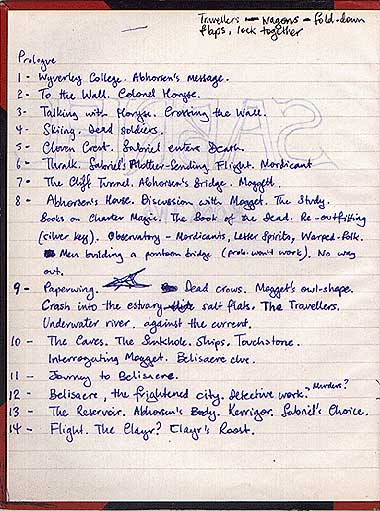 Travellers - Wagons - fold-down
flaps, lock together
Prologue
1 - Wyverley College. Abhorsen's message.
2 - To the Wall. Colonel Horyse.
3 - Talking with Horyse. Crossing the Wall.
4 - Skiing. Dead soldiers.
5 - Cloven Crest. Sabriel enters Death.
6 - Thralk. Sabriel's Mother-Sending. Flight. Mordicant
7 - The Cliff Tunnel. Abhorsen's Bridge. Moggett.
8 - Abhorsen's House. Discussion with Mogget. The Study.
Books on Charter Magic. The Book of the Dead. Re-outfitting
(silver key). Observatory - Mordicants, Lesser Spirits, Warped-folk.
Men building a pontoon bridge (prob. won't work). No way
out.
9 - Paperwing. Dead crows. Mogget's owl-shape.
Crash into the estuary salt flats. The Travellers.
Underwater river. against the current.
10 - The Caves. The Sunkhole. Ships. Touchstone.
Interrogating Mogget. Belisaere clue.
11 - Journey to Belisaere.
12 - Belisaere, the frightened city. Detective work. Murders?
13 - The Reservoir. Abhorsen's Body. Kerrigor. Sabriel's Choice.
14 - Flight. The Clayr? Clayr's Roost.